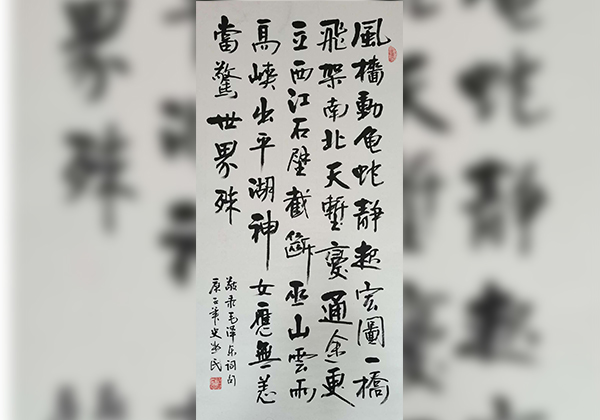 風檣動龜蛇靜起宏圖一橋
飛架南北天塹變通途更
立西江石壁截斷巫山雲雨
高峽出平湖神女應無恙
當驚世界殊
敬录毛泽东词句
庚子年史民